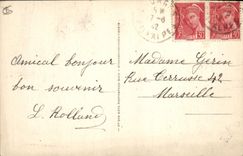 Amical bonjour
bon souvenir
L. Rolland
Madame Gérin
Rue Terrusse 42
Marseille